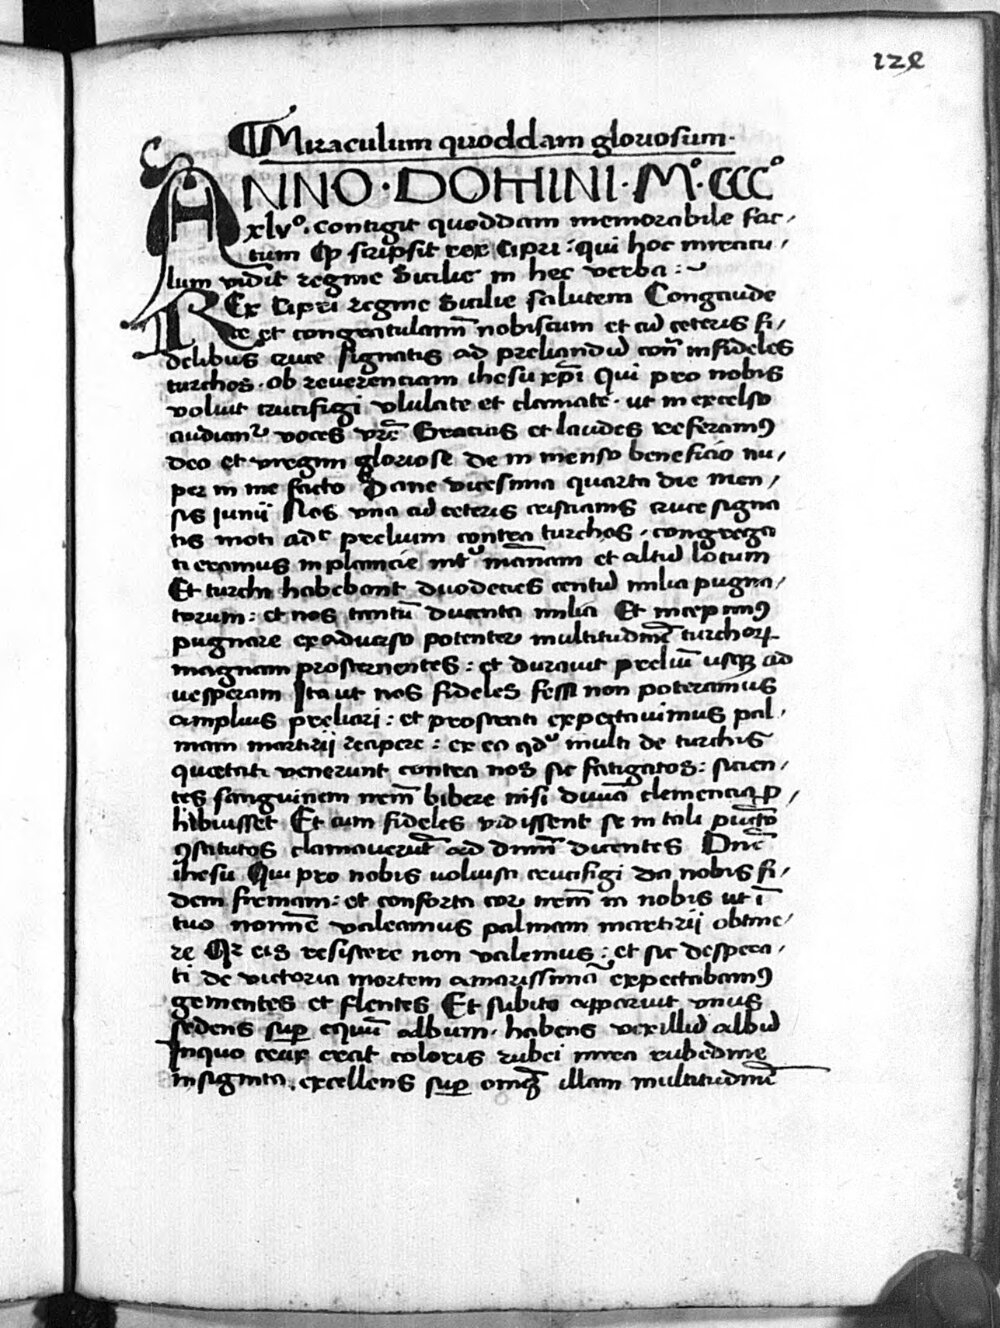 128
¶ Miraculum quoddam gloriosum·
ANNO · DOMINI · Mº · CCCº
xlvº. contigit quoddam memorabile fac/
tum qͥ scripsit rex Cipri : qui hoc miracu/
lum vidit regine Sicilie in hec verba :~
REx Cipri regine Sicilie salutem Congaude
te et congratulamī nobiscum et cū ceteris fi/
delibus cruce signatis ad preliandū cont͂ infideles
turchos · ob reuerenciam ihesu xp̄i Qui pro nobis
voluit crucifigi vlulate et clamate · ut in excelso
audianᵗ voces vrē Gracias et laudes referamꝰ
deo et virgini gloriose de in menso beneficio nu/
per in me facto Sane vicesima quarta die men/
sis Junij Nos vna cū ceteris cristianis cruce signa
tis moti ad prelium contra turchos · congrega
ti eramus in planicie int̓ mānam et altū locum
Et turchi habebant duodecies centū milia pugna/
torum : et nos tantū ducenta milia Et incepimꝰ
pugnare ex aduerso potenter multitudinē turchoꝝ
magnam prosternentes : et durauit preliū usqꝫ ad
uesperam Ita ut nos fideles fessi non poteramus
amplius preliari : et prostrati expectauimus pal/
mam martirij recipere : ex eo qd̓ multi de turchis
quietati venerunt contra nos sic fatigatos : sicien/
tes sanguinem nr̄m bibere nisi diuīa clemencia ꝓ/
hibuisset Et cum fideles vidissent se in tali pūcto
ꝯstitutos clamauerūt ad dn̄m dicentes Dn̄e
ihesu Qui pro nobis uoluisti crucifigi da nobis fi/
dem firmam : et conforta cor nr̄m in nobis ut ī
tuo nomīe valeamus palmam martirij obtine/
re Qꝛ eis resistere non valemus : et sic despera/
ti de victoria mortem amarissimā expectabamꝰ
gementes et flentes Et subito apparuit vnus
sedens suꝑ equū album · habens vexillū albū
In quo crux erat coloris rubei mira rubedine
insignita · excellens suꝑ omnē illam multitudinē